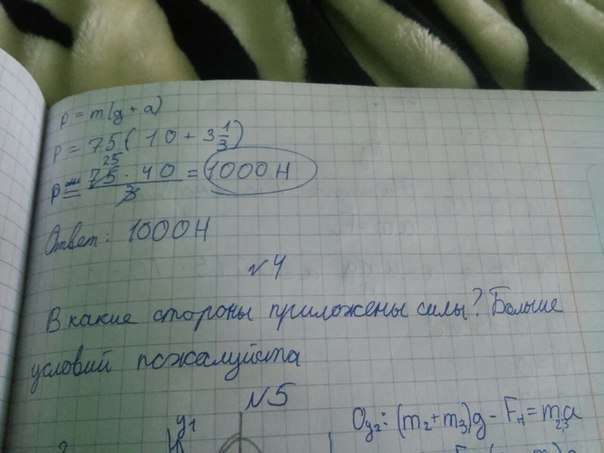 P = m(g + a)
P = 75(10 + 3 1/3)
P = 75 25 · 40 / 3 = 1000 Н
Ответ: 1000 Н
№ 4
В какие стороны приложены силы? Больше
условий пожалуйста
№ 5
y1
Oy2: (m2 + m3)g - Fн = m2,3a